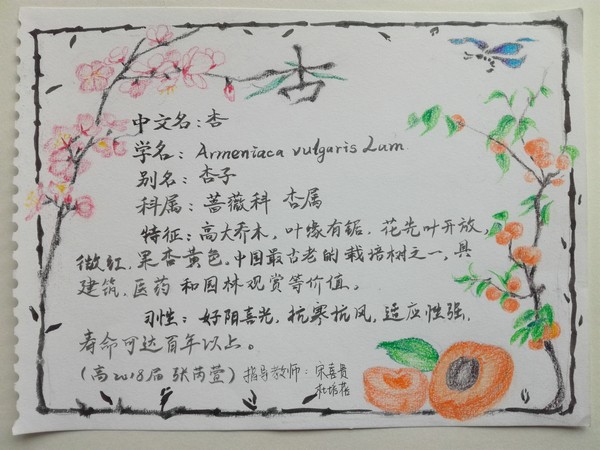 杏
中文名：杏
学名：Armeniaca vulgaris Lam.
别名：杏子
科属：蔷薇科 杏属
特征：高大乔木，叶缘有锯．花先叶开放，
微红．果杏黄色。中国最古老的栽培树之一，具
建筑．医药和园林观赏等价值。
习性：好阳喜光，抗寒抗风，适应性强，
寿命可达百年以上。
（高2018届 张芮萱）指导教师：宋喜贵
杜培蓓